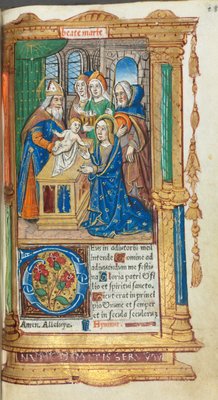 beate marie
Deus in adiutoriu meu
intende Domine ad
adiuuandum me festina
Gloria patri Et fi
lio et spiritui sancto,
Sicut erat in princi
pio Et nunc et semper
et in secula seculorum
Amen, Alleluya. Hymnus.
NVNC DIMITIS SERVVM